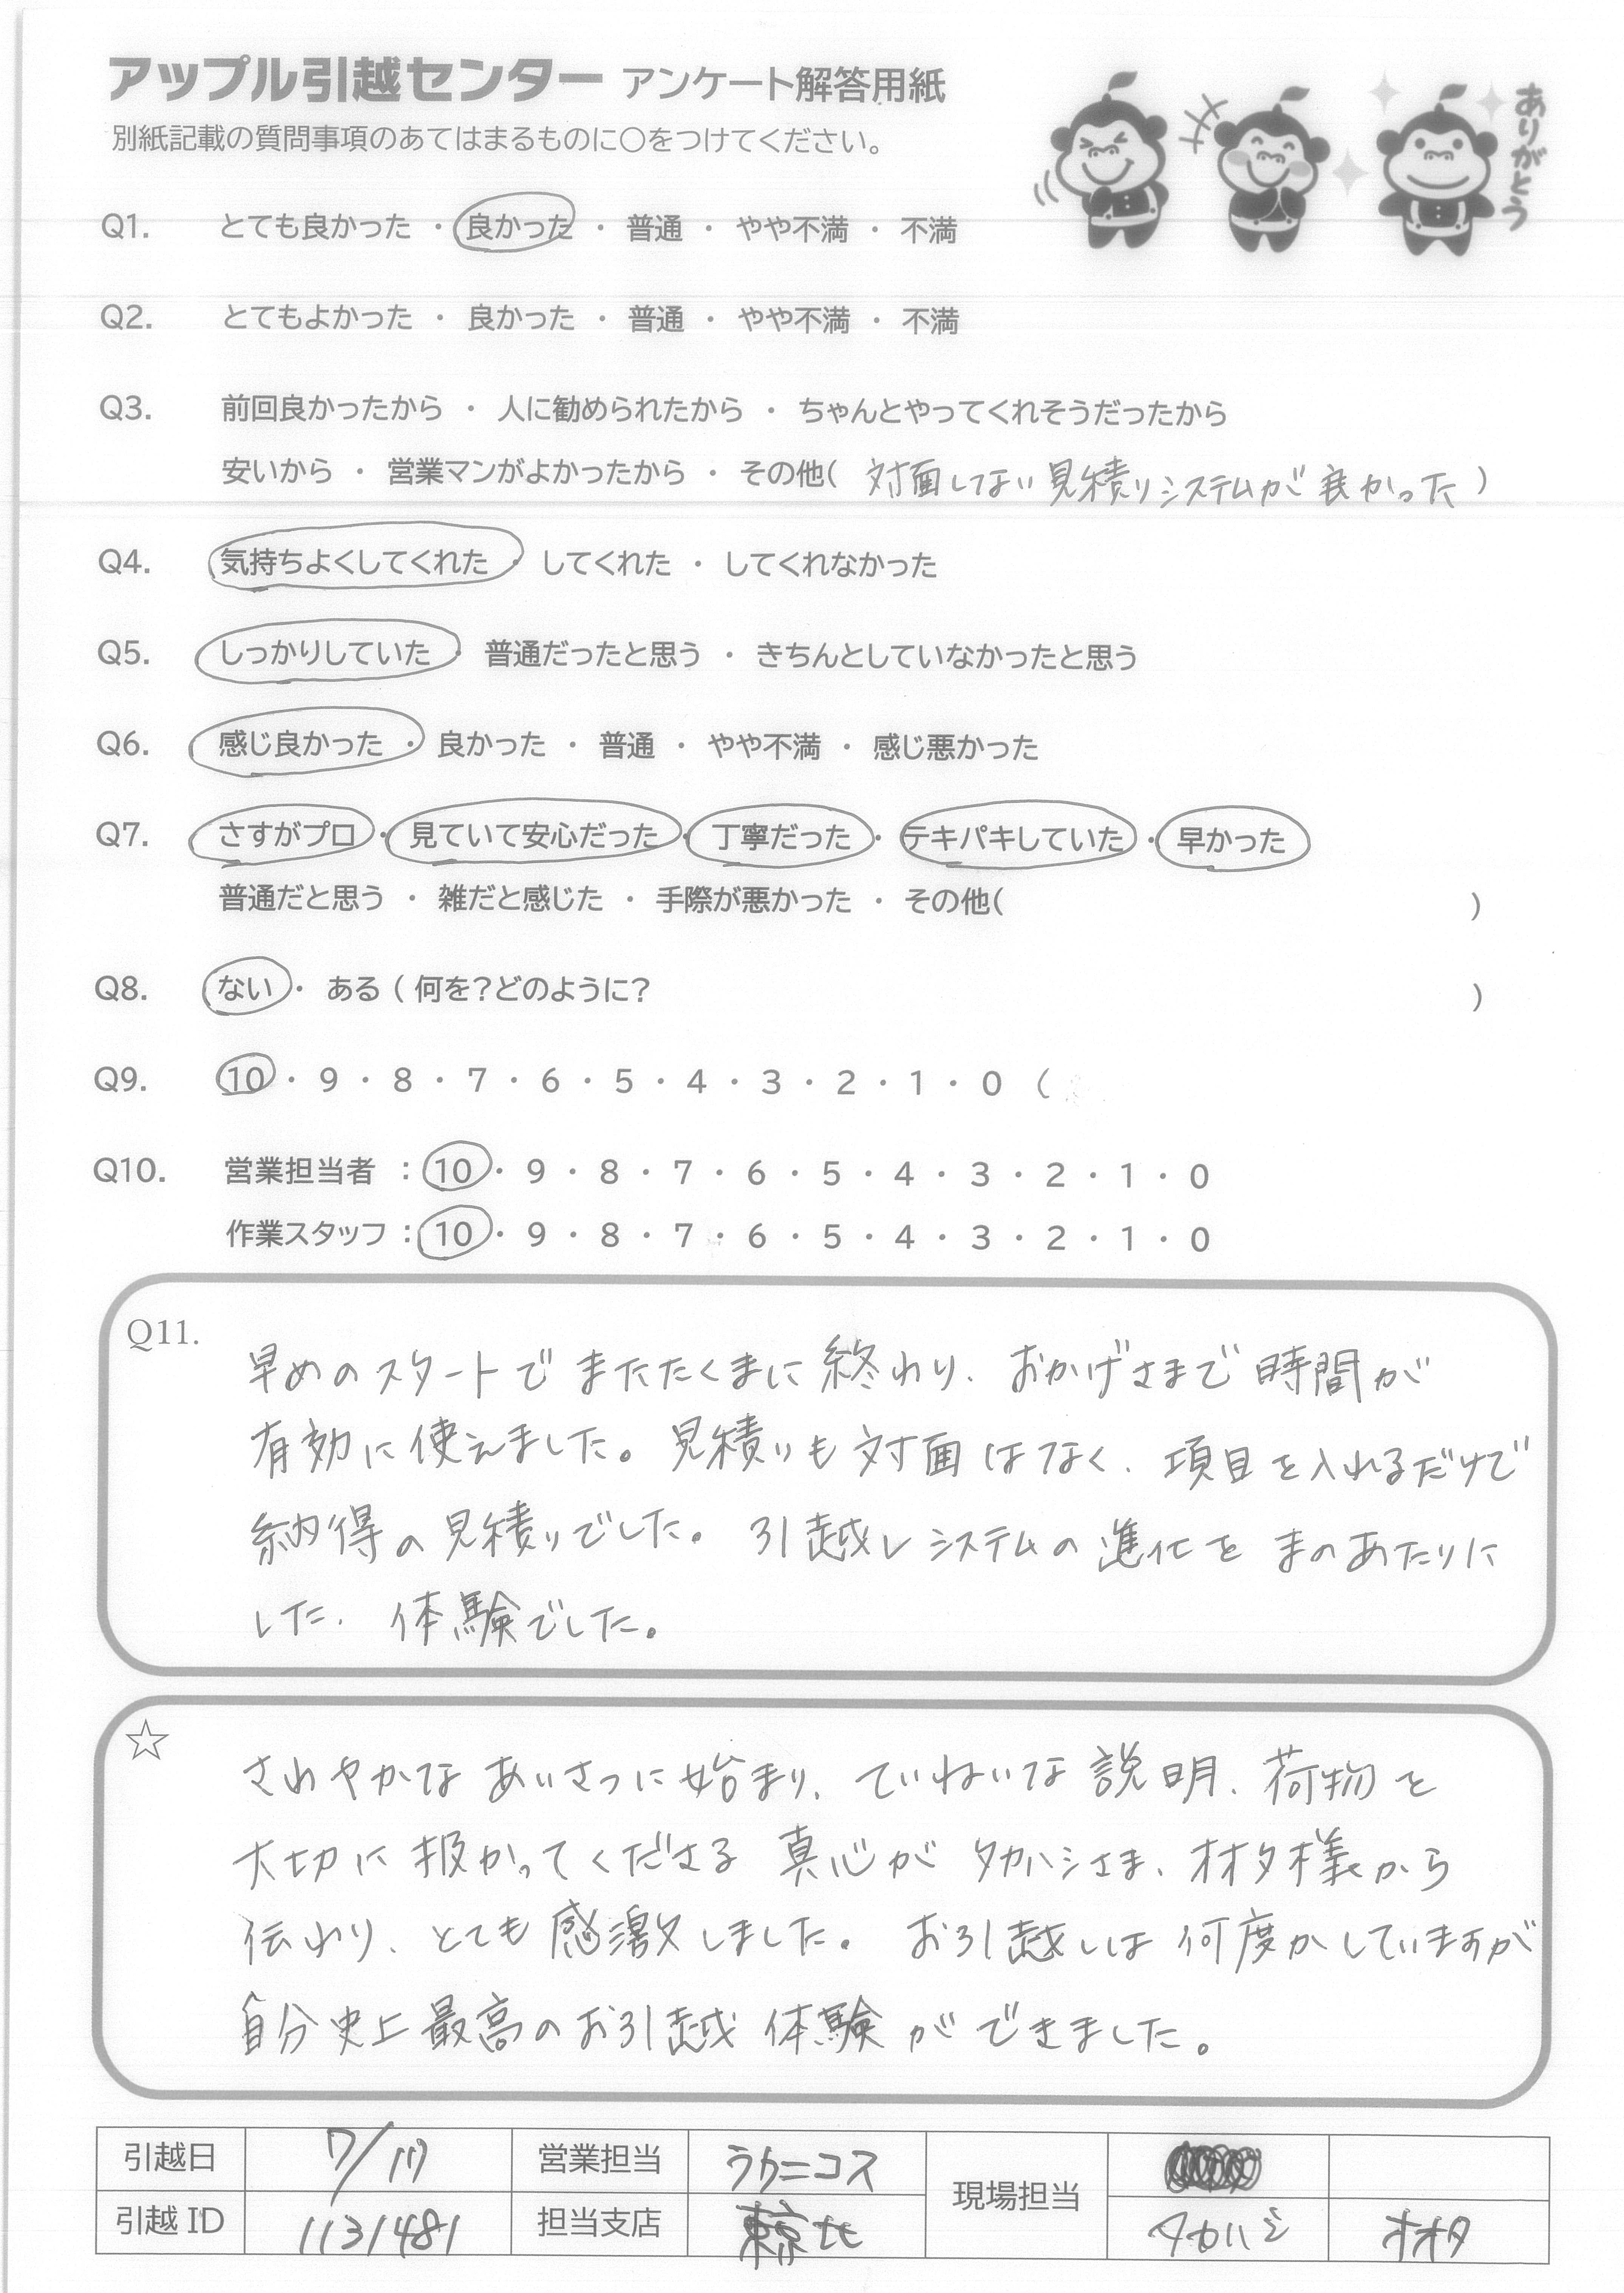 アップル引越センター アンケート解答用紙
別紙記載の質問事項のあてはまるものに○をつけてください。
ありがとう
Q1. とても良かった ・ 良かった ・ 普通 ・ やや不満 ・ 不満
Q2. とてもよかった ・ 良かった ・ 普通 ・ やや不満 ・ 不満
Q3. 前回良かったから ・ 人に勧められたから ・ ちゃんとやってくれそうだったから
安いから ・ 営業マンがよかったから ・ その他( 対面してない見積りシステムが良かった )
Q4. 気持ちよくしてくれた ・ してくれた ・ してくれなかった
Q5. しっかりしていた ・ 普通だったと思う ・ きちんとしていなかったと思う
Q6. 感じ良かった ・ 良かった ・ 普通 ・ やや不満 ・ 感じ悪かった
Q7. さすがプロ ・ 見ていて安心だった ・ 丁寧だった ・ テキパキしていた ・ 早かった
普通だと思う ・ 雑だと感じた ・ 手際が悪かった ・ その他( )
Q8. ない ・ ある ( 何を?どのように? )
Q9. 10 ・ 9 ・ 8 ・ 7 ・ 6 ・ 5 ・ 4 ・ 3 ・ 2 ・ 1 ・ 0 (
Q10. 営業担当者 : 10 ・ 9 ・ 8 ・ 7 ・ 6 ・ 5 ・ 4 ・ 3 ・ 2 ・ 1 ・ 0
作業スタッフ : 10 ・ 9 ・ 8 ・ 7 ・ 6 ・ 5 ・ 4 ・ 3 ・ 2 ・ 1 ・ 0
Q11.
早めのスタートでまたたくまに終わり、おかげさまで時間が
有効に使えました。見積りも対面はなく、項目を入れるだけで
納得の見積りでした。引越しシステムの進化をまのあたりに
した、体験でした。
☆
さわやかなあいさつに始まり、ていねいな説明、荷物を
大切に扱かってくださる真心がタカハシさま、オオタ様から
伝わり、とても感激しました。お引越しは何度かしていますが
自分史上最高のお引越体験ができました。
引越日 7/17 営業担当 ラクニコス 現場担当
引越ID 1131481 担当支店 東京北 タカハシ オオタ